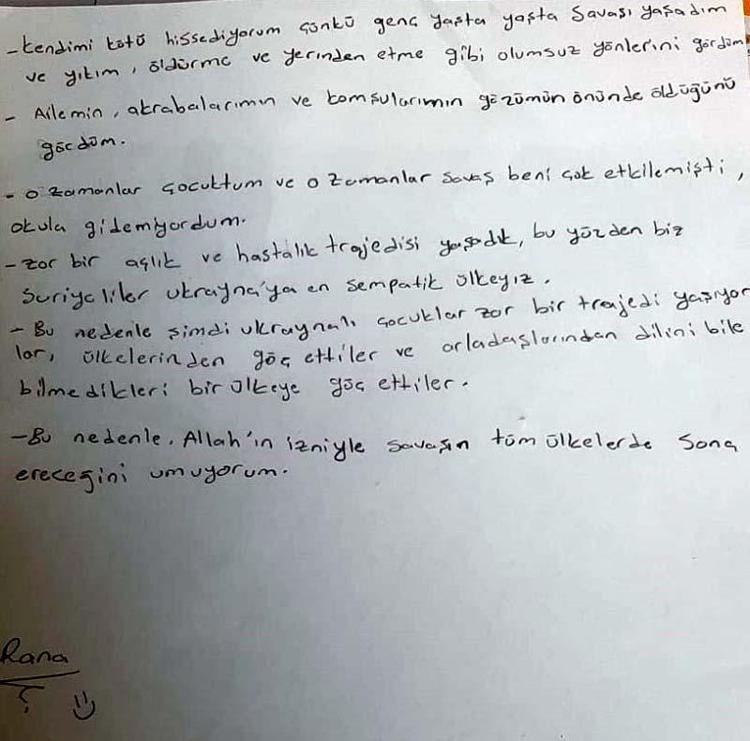 - Kendimi kötü hissediyorum çünkü genç yaşta yaşta Savaşı yaşadım
ve yıkım, öldürme ve yerinden etme gibi olumsuz yönlerini gördüm
- Ailemin, akrabalarımın ve komşularımın gözümün önünde öldüğünü
gördüm.
- o zamanlar çocuktum ve o zamanlar savaş beni çok etkilemişti,
okula gidemiyordum.
- zor bir açlık ve hastalık trajedisi yaşadık, bu yüzden biz
Suriyeliler ukrayna'ya en sempatik ülkeyiz.
- Bu nedenle şimdi ukraynalı çocuklar zor bir trajedi yaşıyor
lar, ülkelerinden göç ettiler ve arladaşlarından dilini bile
bilmedikleri bir ülkeye göç ettiler.
- Bu nedenle. Allah'ın izniyle savaşın tüm ülkelerde sona
ereceğini umuyorum.
Rana